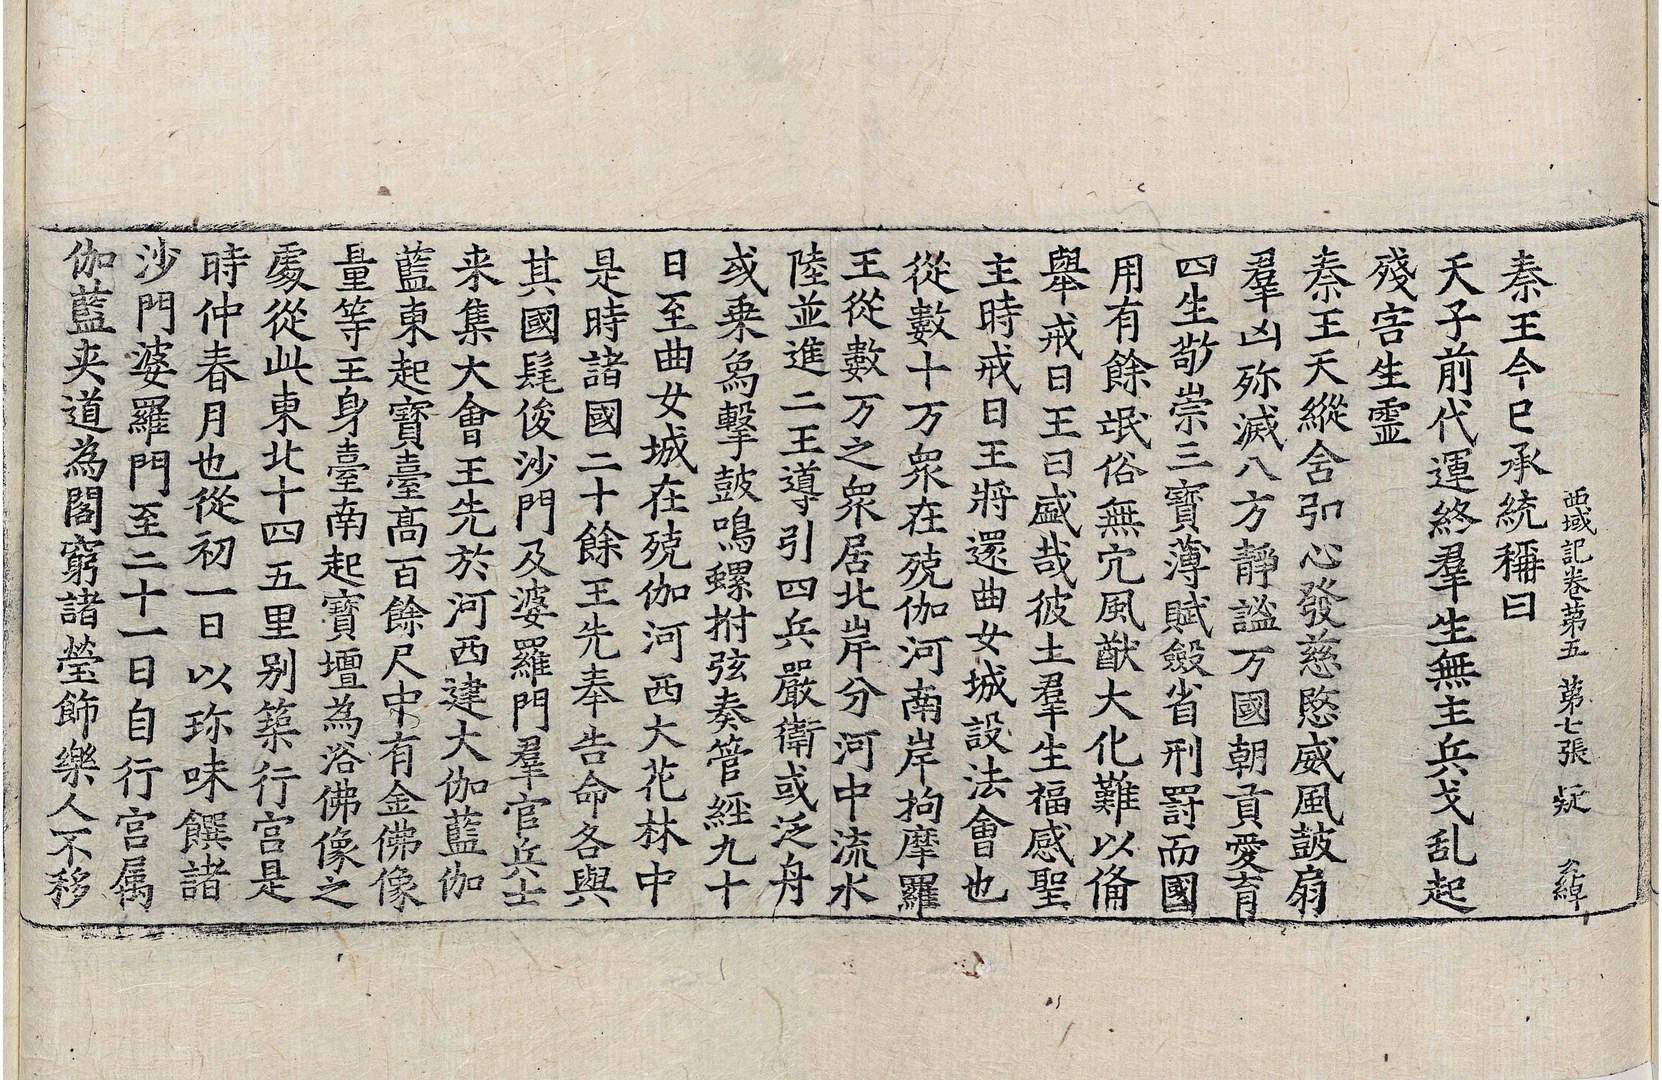 西域記卷第五 第七張 疑
秦王今已承統稱曰
天子前代運終羣生無主兵戈乱起
殘害生靈
秦王天縱含弘心發慈愍威風皷扇
羣凶殄滅八方靜謐万國朝貢愛育
四生敬崇三寶薄賦斂省刑罰而國
用有餘氓俗無宄風猷大化難以俻
舉戒日王曰盛哉彼土羣生福感聖
主時戒日王將還曲女城設法會也
從數十万衆在殑伽河南岸拘摩羅
王從數万之衆居北岸分河中流水
陸並進二王導引四兵嚴衛或泛舟
或乗象擊鼓鳴螺拊弦奏管經九十
日至曲女城在殑伽河西大花林中
是時諸國二十餘王先奉告命各與
其國髦俊沙門及婆羅門羣官兵士
来集大會王先於河西建大伽藍伽
藍東起寶臺髙百餘尺中有金佛像
量等王身臺南起寶壇為浴佛像之
處從此東北十四五里别築行宫是
時仲春月也從初一日以珎味饌諸
沙門婆羅門至二十一日自行宫属
伽藍夾道為閣窮諸瑩飾樂人不移